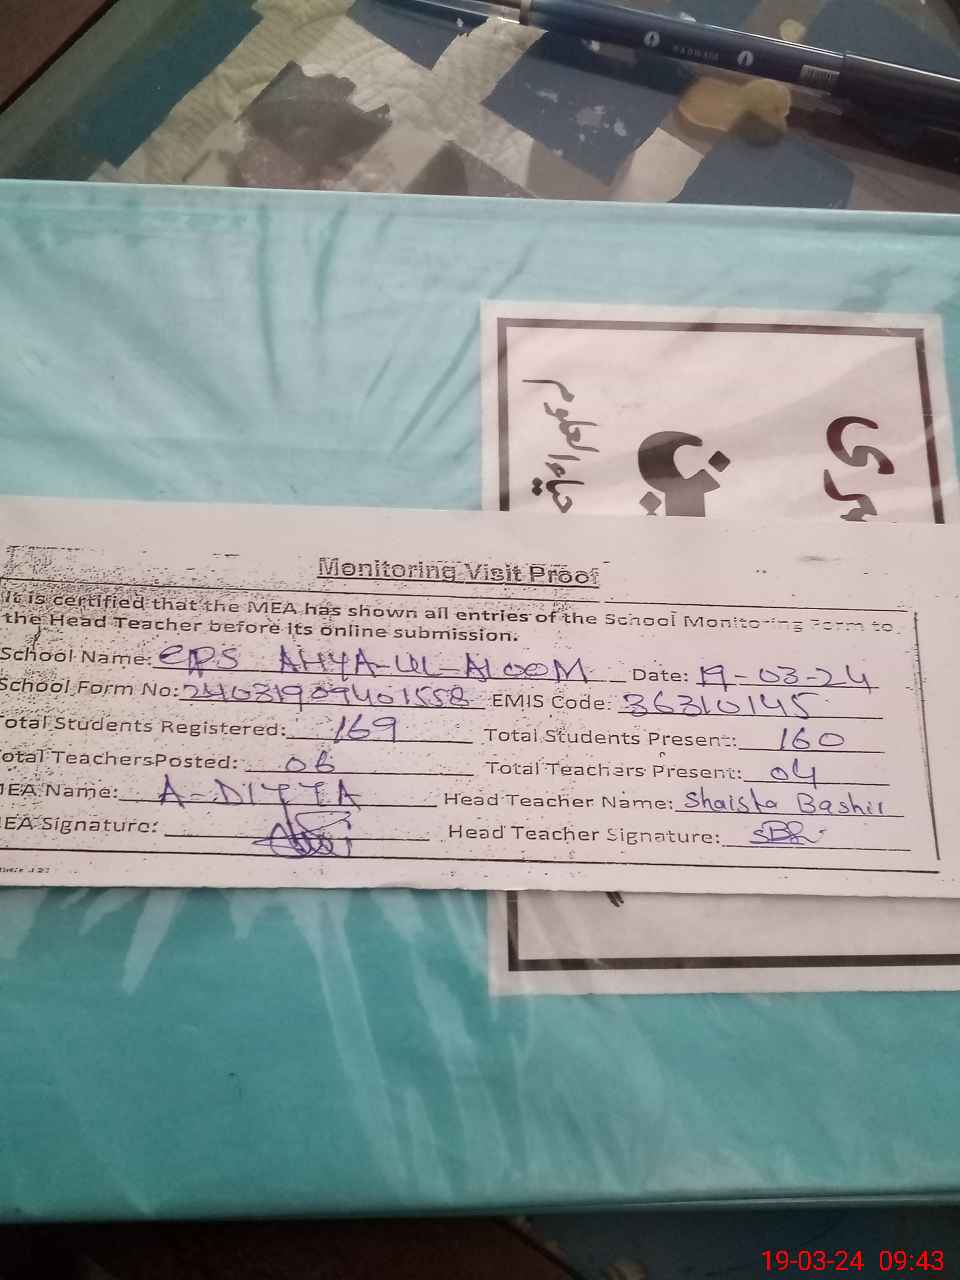 RADWAIA
حیاء العلوم
Monitoring Visit Proof
It is certified that the MEA has shown all entries of the School Monitoring Form to
the Head Teacher before its online submission.
School Name: GPS AHYA-UL-ALOOM Date: 19-03-24
School Form No: 24031909401558 EMIS Code: 36310145
Total Students Registered: 169 Total Students Present: 160
otal TeachersPosted: 06 Total Teachers Present: 04
MEA Name: A-DITTA Head Teacher Name: Shaista Bashir
MEA Signature: Head Teacher Signature:
19-03-24 09:43